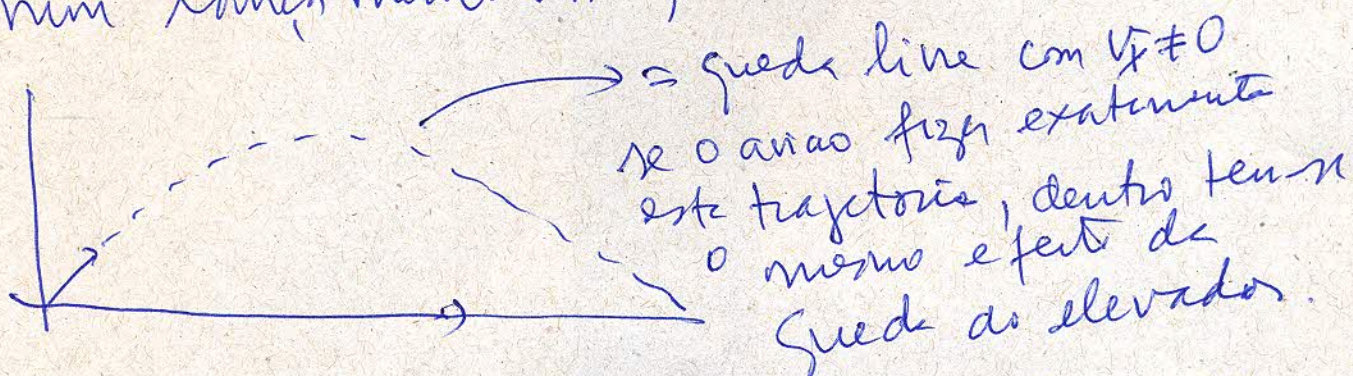 num
= queda livre com Vx ≠ 0
se o aviao fizer exatamente
esta trajetória, dentro tem-se
o mesmo efeito da
queda do elevador.